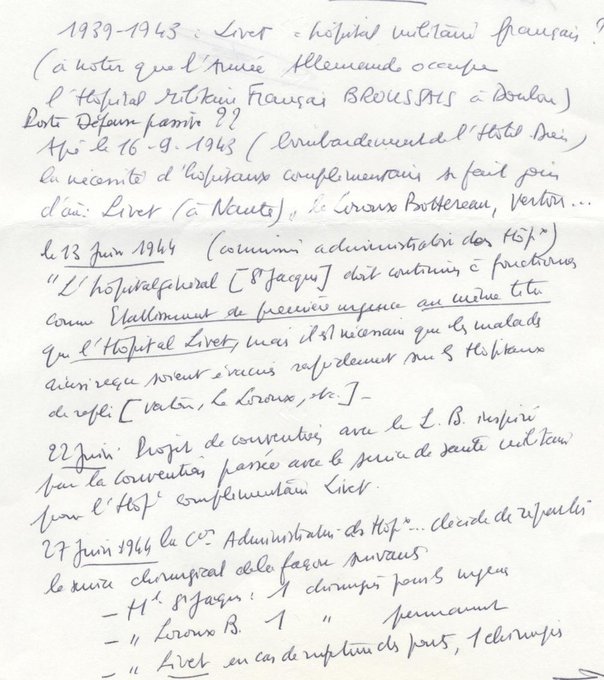 1939-1943 : Livet = hôpital militaire français ?
(à noter que l'Armée Allemande occupe
l'Hôpital Militaire Français BROUSSAIS à Doulon)
Poste Défense passive ??
Après le 16-9-1943 (bombardement de l'Hôtel Dieu)
la nécessité d'hôpitaux complémentaires se fait
d'où : Livet (à Nantes), le Loroux Bottereau, Vertou...
le 13 Juin 1944 (commission administrative des Hôpx)
"L'hôpital général [St Jacques] doit continuer à fonctionner
comme Etablissement de première urgence au même titre
que l'Hôpital Livet, mais il est nécessaire que les malades
ainsi reçus soient évacués rapidement sur les Hôpitaux
de repli [Vertou, Le Loroux, etc.] -
22 Juin. Projet de convention avec le L.B. inspiré
par la convention passée avec le service de santé militaire
pour l'Hôpal complémentaire Livet.
27 Juin 1944 la Con Administrative des Hôpx... décide de répartir
le service chirurgical de la façon suivante
- Hal St Jacques : 1 chirurgien pour les urgences
- " Loroux B. 1 " permanent
- " Livet en cas de rupture des ponts, 1 chirurgien